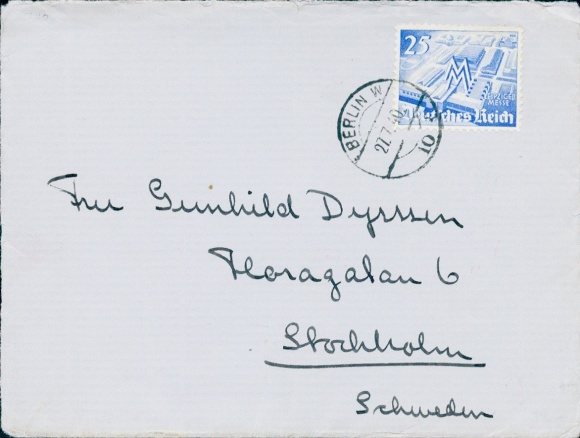 25
LEIPZIGER
MESSE
Deutsches Reich
BERLIN W
27.7.40
10
Fru Gunhild Dyrssen
Floragatan 6
Stockholm
Schweden